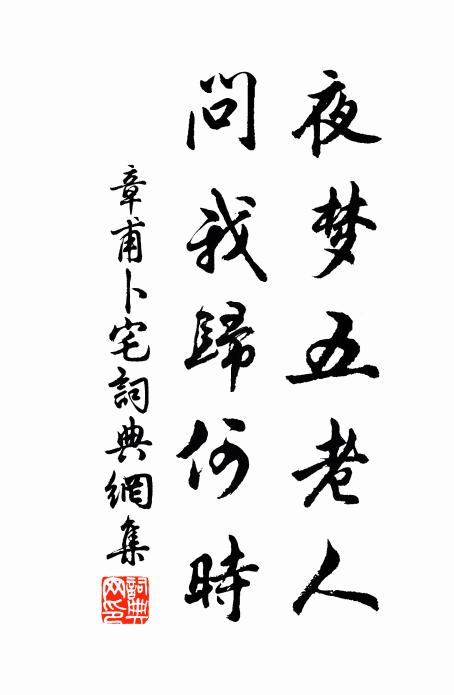 夜梦五老人
問我歸何時
章甫卜宅詞典網集
詞典网印